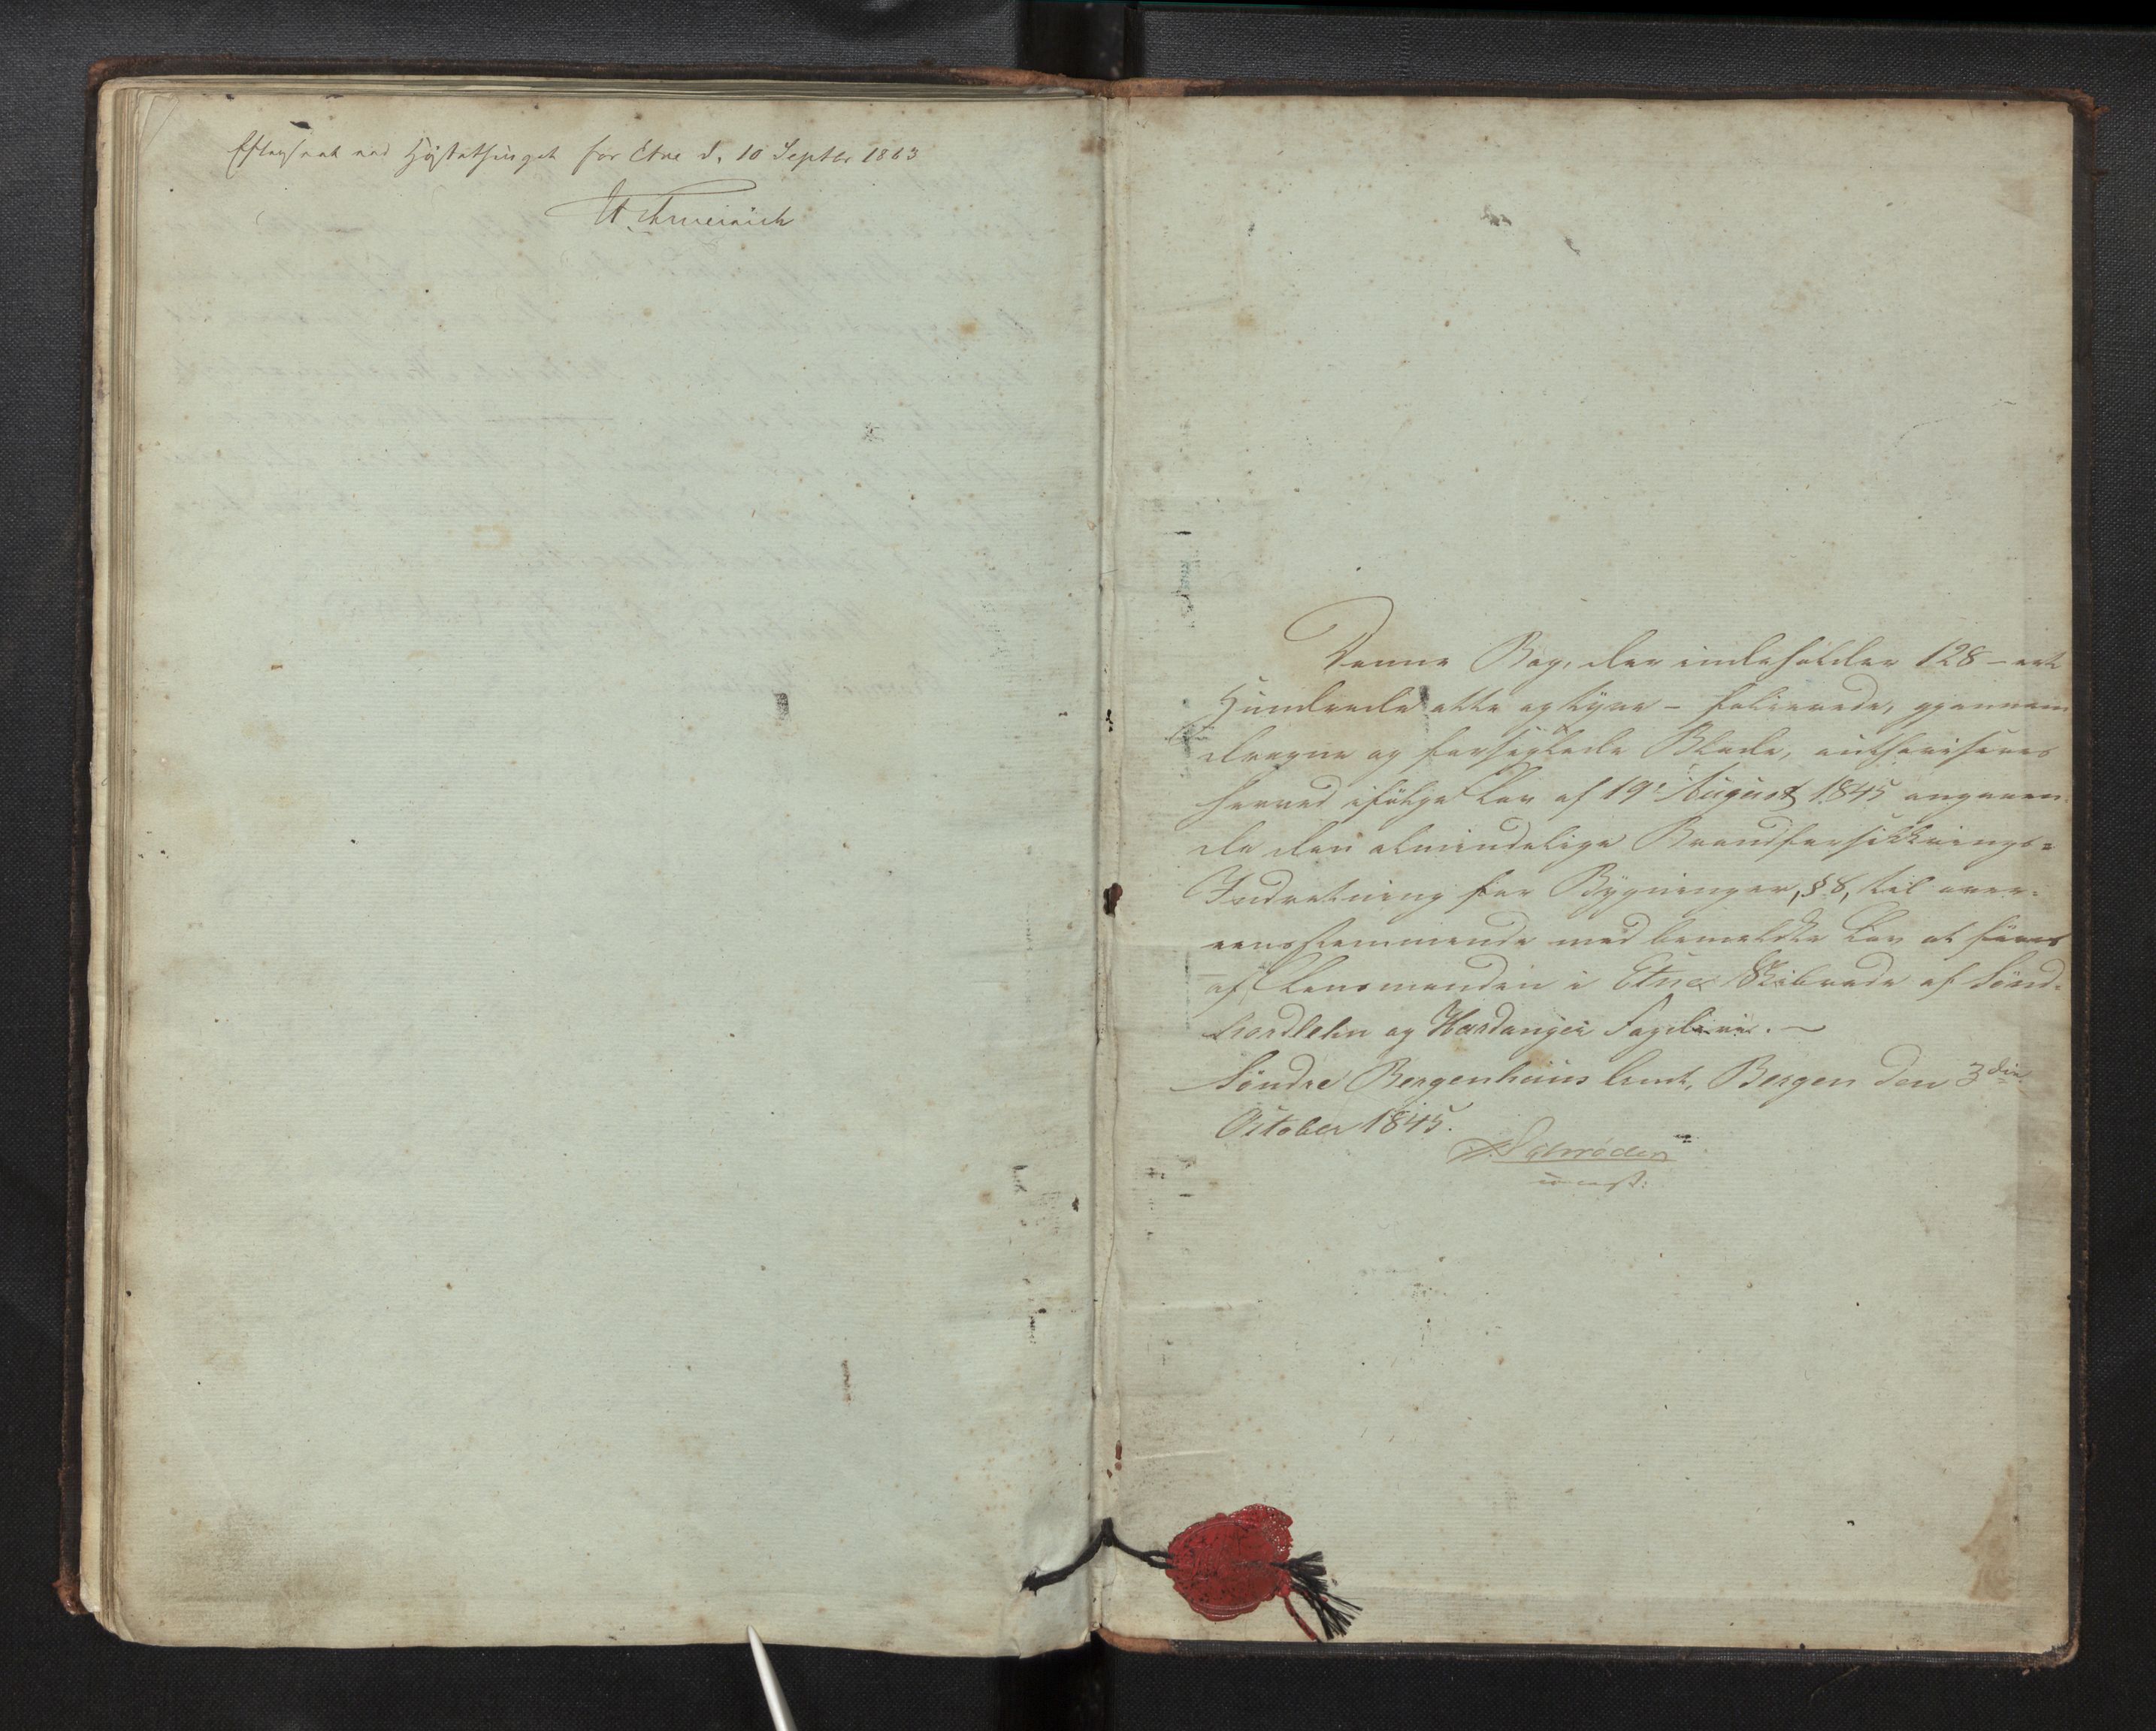 Efterseet ved Høstethinget for Etne d. 10 Septbr 1863
Denne Bog, der indeholder 128 - eet
Hundrede otte og tyve - folierede, gjennem
dragne og forseglede Blade, authoriseres
herved ifølge Lov af 19' August 1845 angaaen
de den almindelige Brandforsikkrings=
Indretning for Bygninger, § 8, til over-
eensstemmende med bemeldte Lov at føres
af Lensmanden i Etne Skibrede af Sønd-
hordlehn og Hardanger Fogderie. -
Søndre Bergenhuus Amt, Bergen den 3die
October 1845.
Schrøder
const: